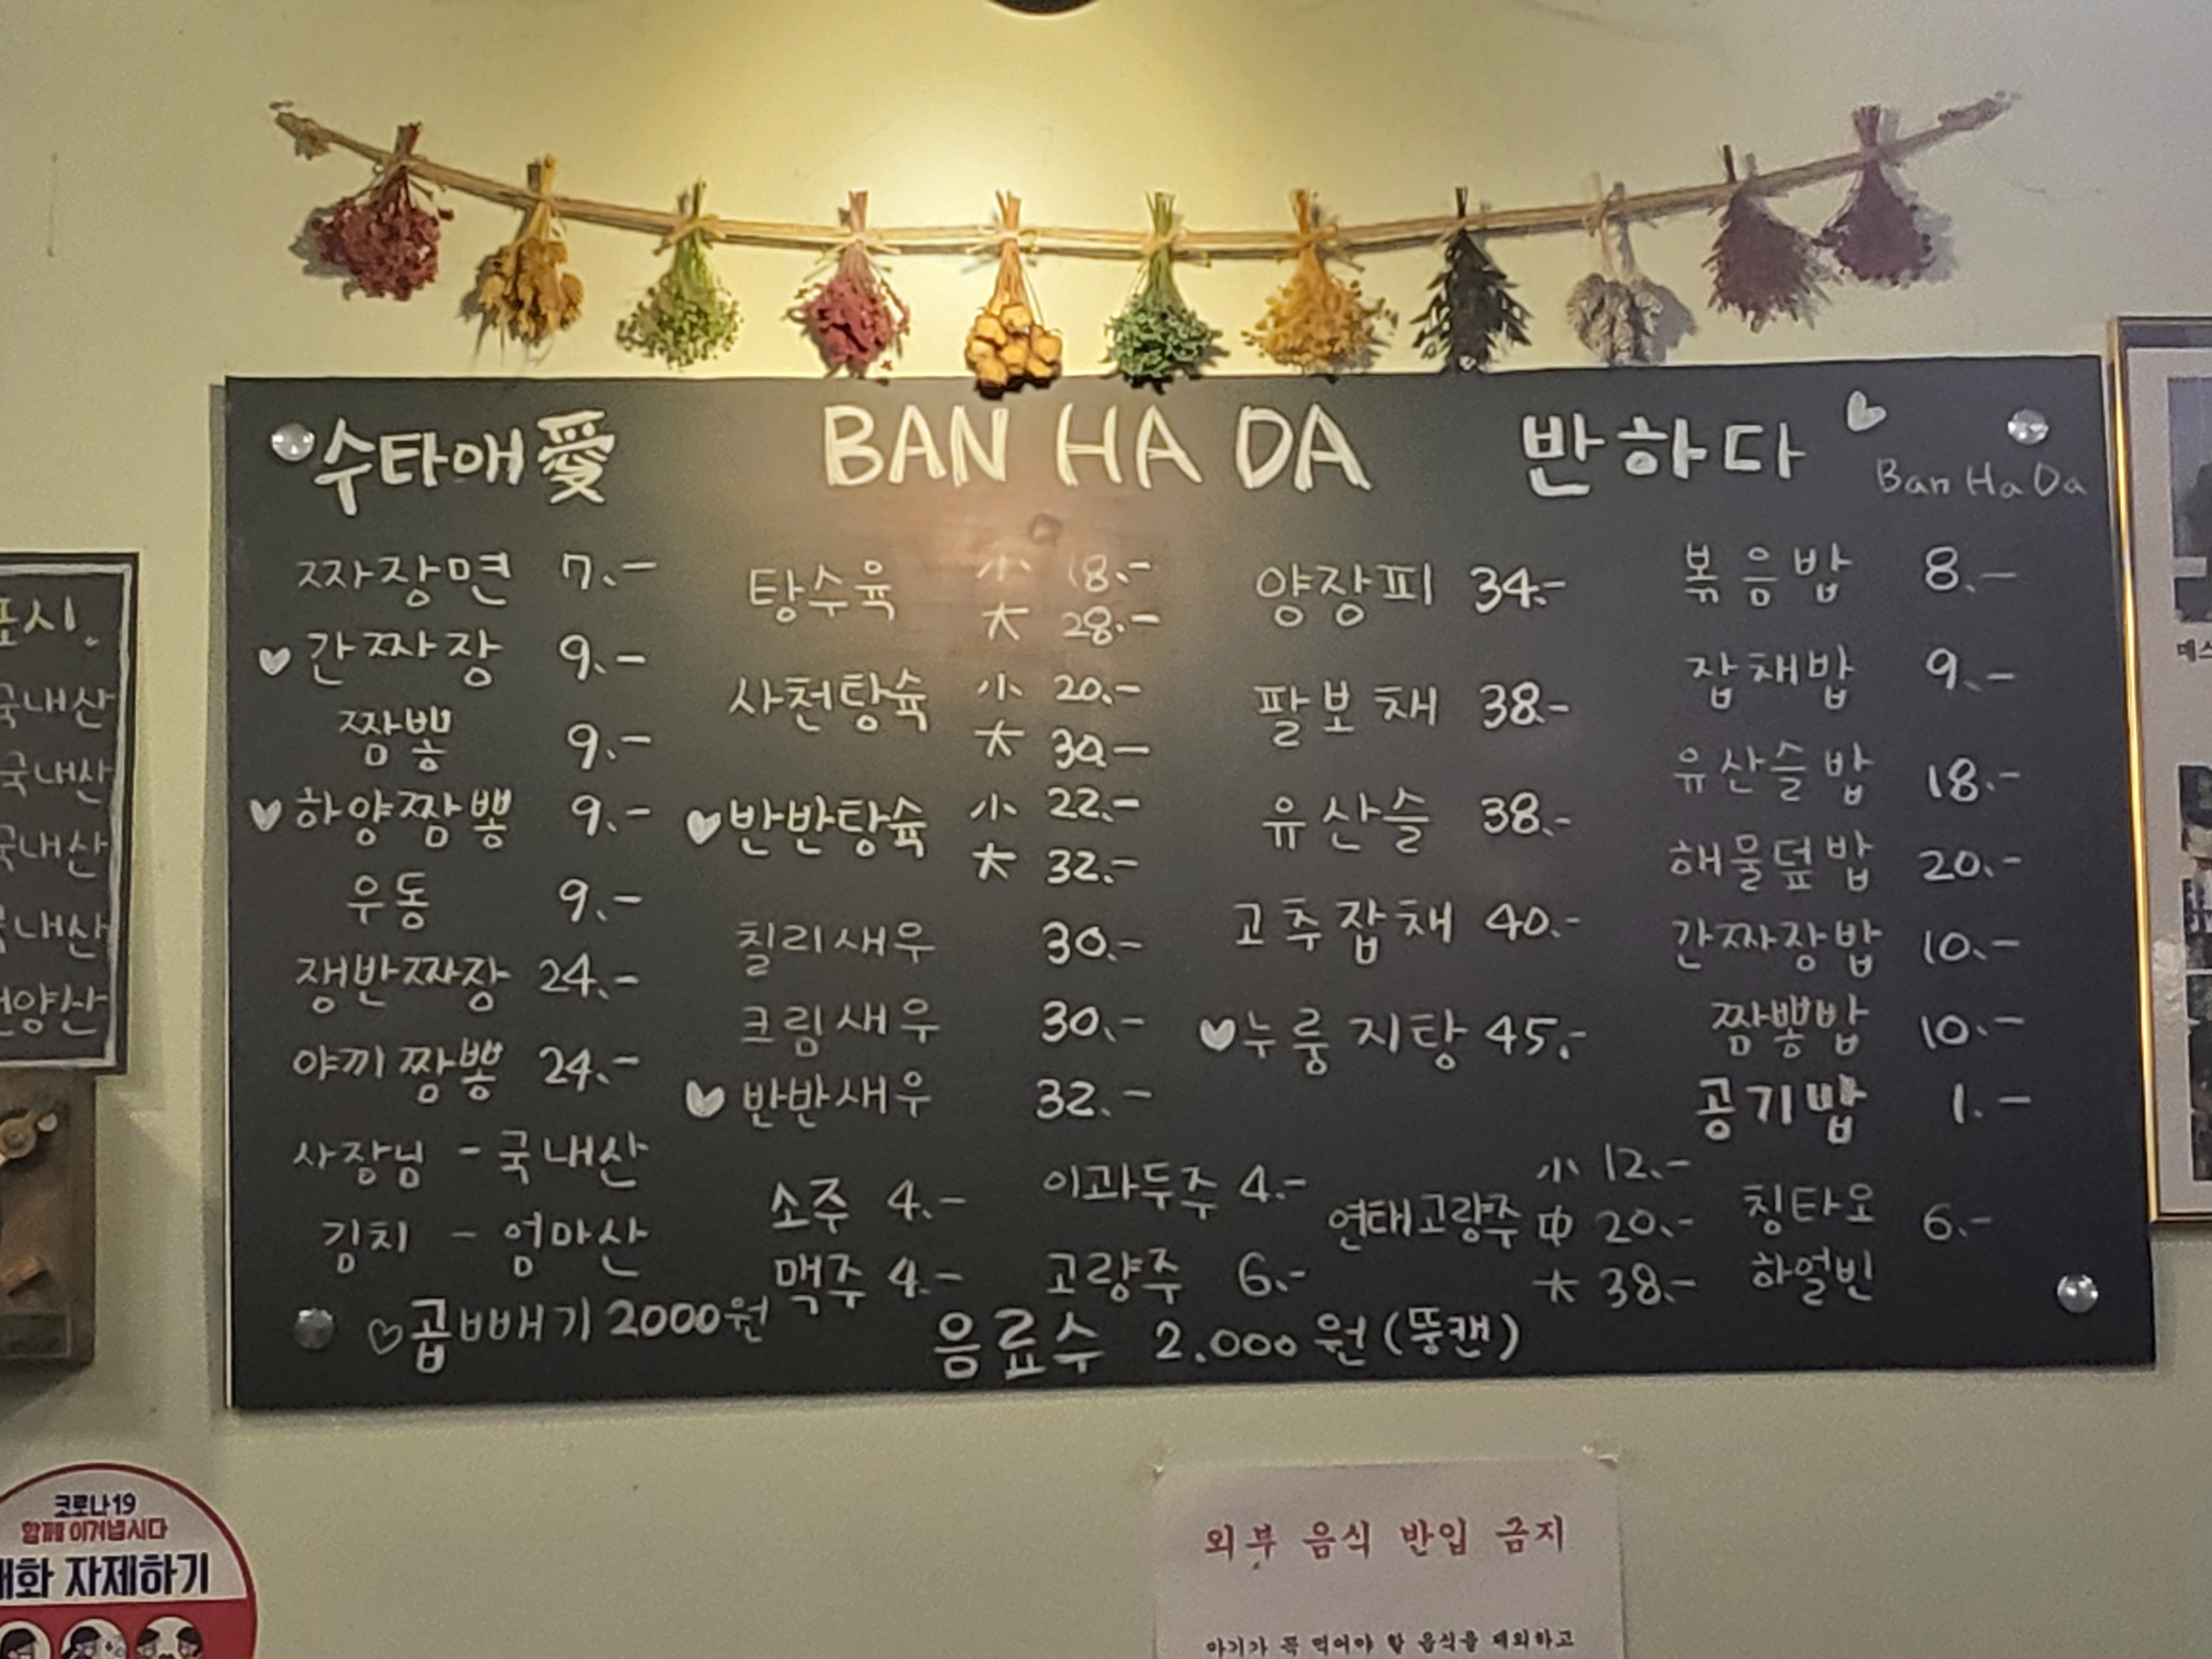 수타애愛 BAN HA DA 반하다 Ban Ha Da
짜장면 7.-
간짜장 9.-
짬뽕 9.-
하양짬뽕 9.-
우동 9.-
쟁반짜장 24.-
야끼짬뽕 24.-
사장님 - 국내산
김치 - 엄마산
곱빼기 2000원
탕수육 小 18.-
大 28.-
사천탕슉 小 20.-
大 30.-
반반탕슉 小 22.-
大 32.-
칠리새우 30.-
크림새우 30.-
반반새우 32.-
양장피 34.-
팔보채 38.-
유산슬 38.-
고추잡채 40.-
누룽지탕 45.-
볶음밥 8.-
잡채밥 9.-
유산슬밥 18.-
해물덮밥 20.-
간짜장밥 10.-
짬뽕밥 10.-
공기밥 1.-
소주 4.-
맥주 4.-
이과두주 4.-
고량주 6.-
연태고량주 小 12.-
中 20.-
大 38.-
칭타오
하얼빈 6.-
음료수 2.000원(뚱캔)
시.
국내산
국내산
국내산
국내산
코로나19
함께 이겨냅시다
자제하기
외부 음식 반입 금지
아기가 꼭 먹어야 할 음식을 제외하고